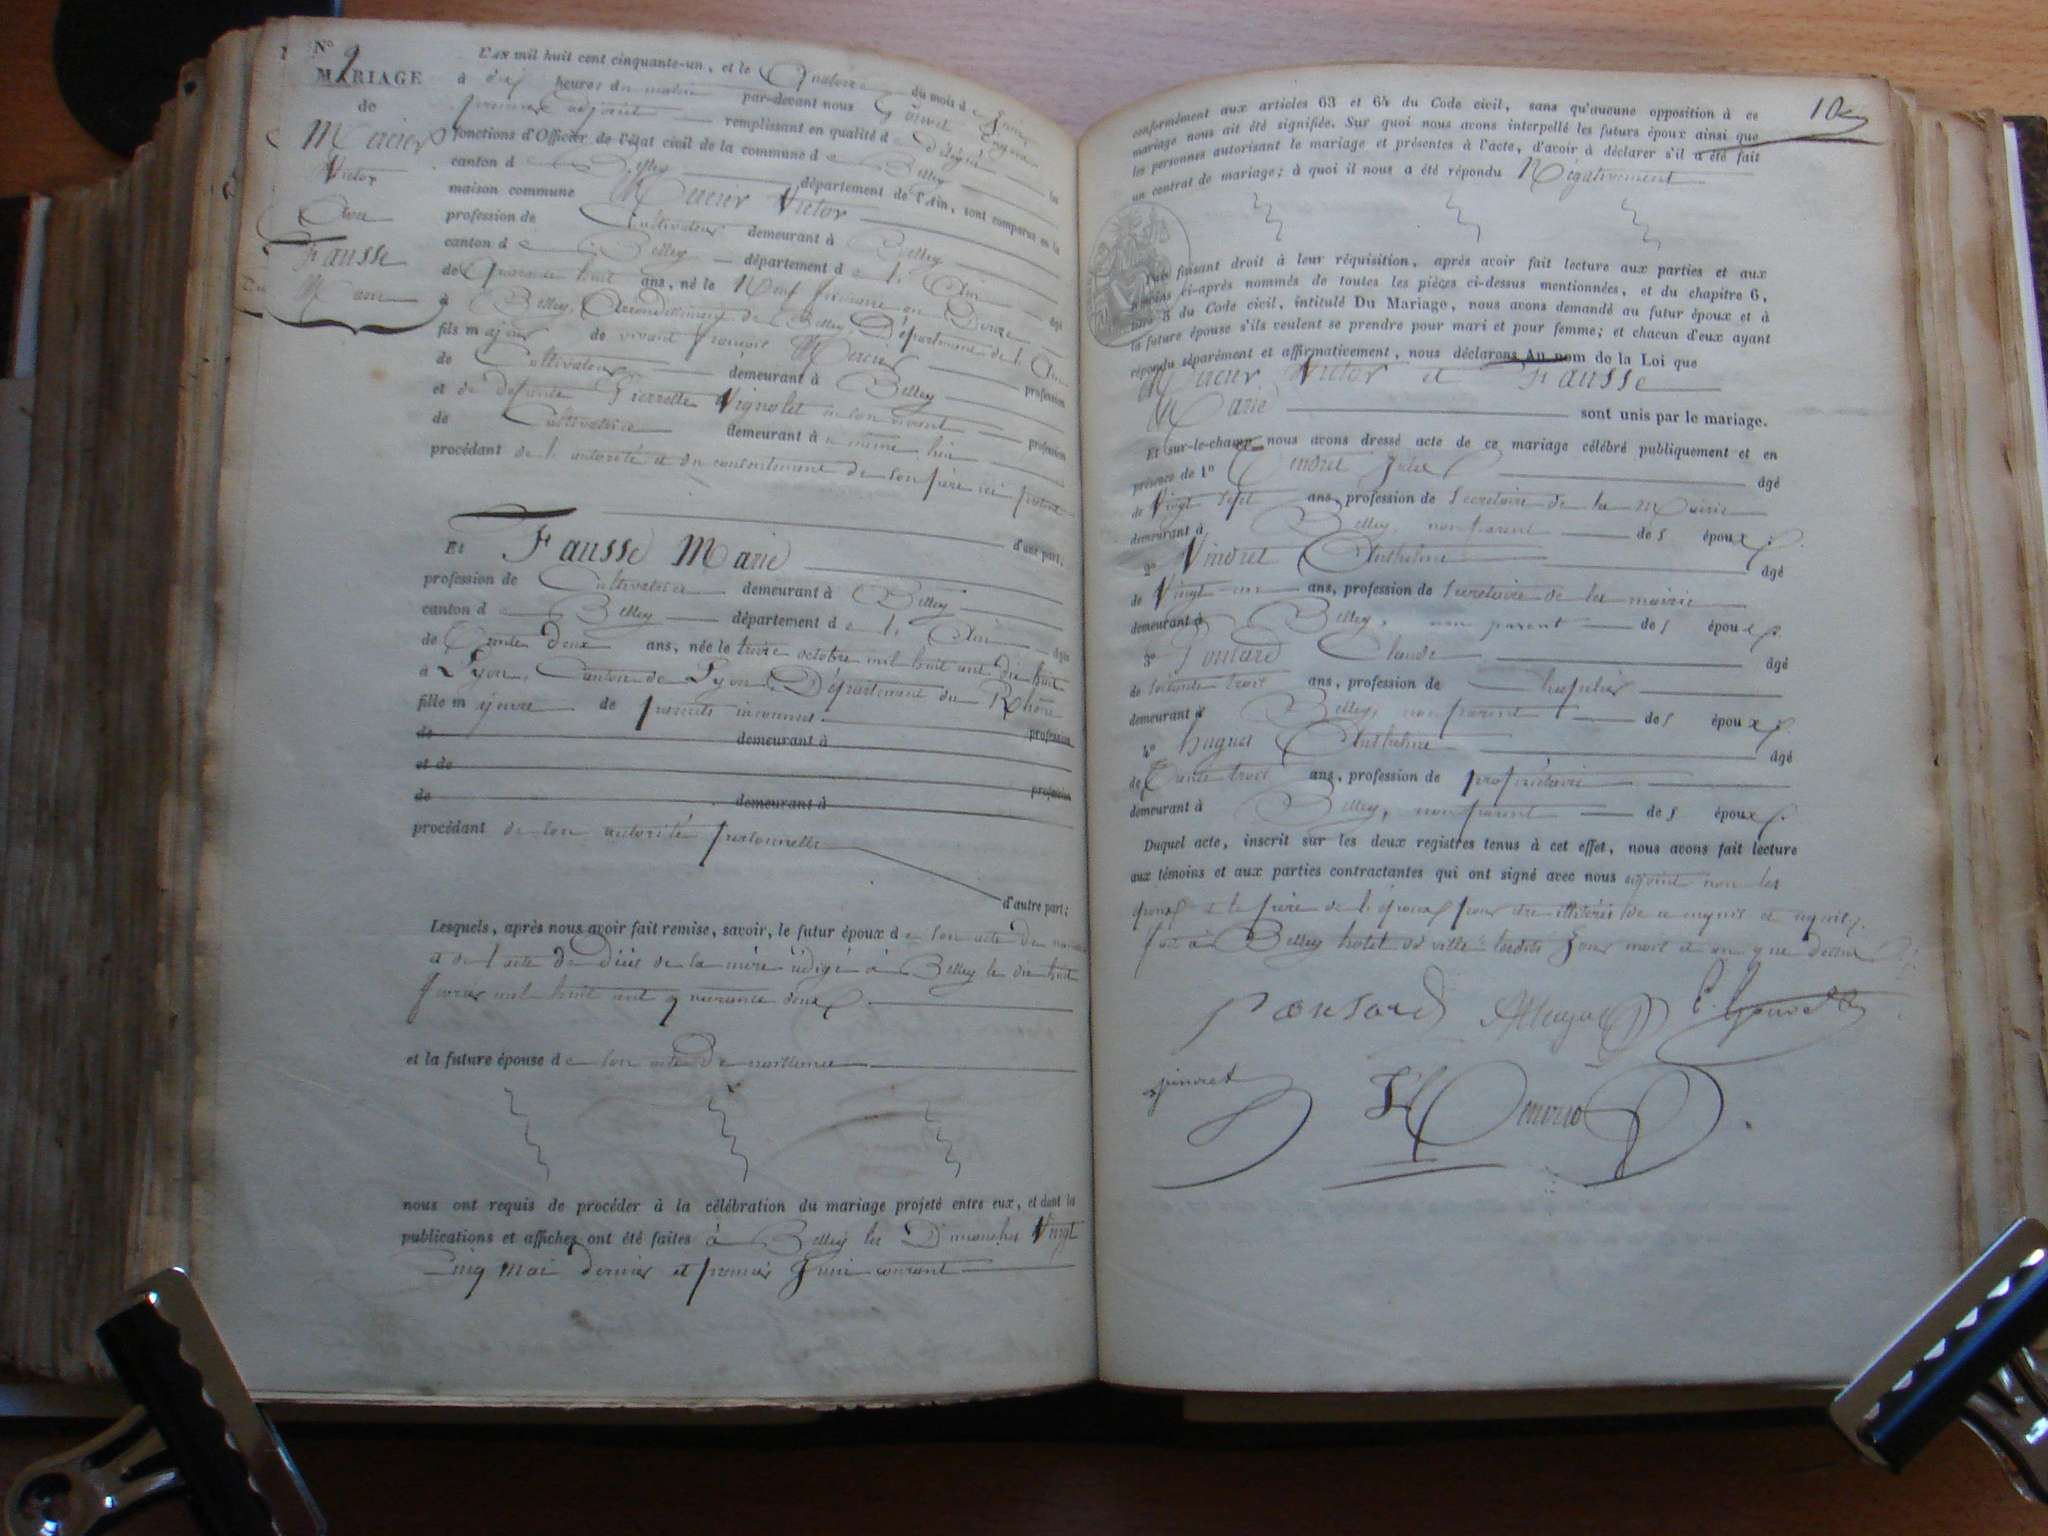 N° 9
MARIAGE
de
Mercier
Victor
Avec
Fausse
Marie
L'an mil huit cent cinquante-un, et le Quatorze du mois de Juin
à dix heures du matin par-devant nous
premier adjoint remplissant en qualité de Délégué les
fonctions d'Officier de l'état civil de la commune de Belley
canton de Belley département de l'Ain, sont comparus en la
maison commune Mercier Victor
profession de Cultivateur demeurant à Belley
canton de Belley département de l'Ain âgé
de Quarante huit ans, né le Neuf frimaire an Douze
à Belley, Arrondissement de Belley, Département de l'Ain
fils majeur de vivant françois Mercier profession
de Cultivateur demeurant à Belley
et de défunte Pierrette Vignolet en son vivant profession
de Cultivatrice demeurant à même lieu
procédant de l'autorité et du consentement de son père ici présent
d'une part,
Et Fausse Marie
profession de Cultivatrice demeurant à Belley
canton de Belley département de l'Ain âgée
de trente deux ans, née le treize octobre mil huit cent dix huit
à Lyon, Canton de Lyon, Département du Rhône
fille majeure de parents inconnus profession
de demeurant à
et de profession
de demeurant à
procédant de son autorité personnelle
d'autre part;
Lesquels, après nous avoir fait remise, savoir, le futur époux de son acte de naissance
et de l'acte de décès de sa mère rédigé à Belley le dix huit
février mil huit cent quarante deux
et la future épouse de son acte de naissance
nous ont requis de procéder à la célébration du mariage projeté entre eux, et dont la
publications et affiches ont été faites à Belley les Dimanches Vingt
Cinq Mai dernier et premier Juin courant
10
conformément aux articles 63 et 64 du Code civil, sans qu'aucune opposition à ce
mariage nous ait été signifiée. Sur quoi nous avons interpellé les futurs époux ainsi que
les personnes autorisant le mariage et présentes à l'acte, d'avoir à déclarer s'il a été fait
un contrat de mariage; à quoi il nous a été répondu Négativement
Puis faisant droit à leur réquisition, après avoir fait lecture aux parties et aux
témoins ci-après nommés de toutes les pièces ci-dessus mentionnées, et du chapitre 6,
titre 5 du Code civil, intitulé Du Mariage, nous avons demandé au futur époux et à
la future épouse s'ils veulent se prendre pour mari et pour femme; et chacun d'eux ayant
répondu séparément et affirmativement, nous déclarons Au nom de la Loi que
Mercier Victor et Fausse
Marie sont unis par le mariage.
Et sur-le-champ nous avons dressé acte de ce mariage célébré publiquement et en
présence de 1° Jules âgé
de Vingt sept ans, profession de Secrétaire de la Mairie
demeurant à Belley, non parent des époux.
2° Vindret Anthelme âgé
de Vingt-un ans, profession de Secrétaire de la mairie
demeurant à Belley, non parent des époux.
3° Ponsard Claude âgé
de soixante trois ans, profession de
demeurant à Belley, non parent des époux.
4° Anthelme âgé
de trente trois ans, profession de propriétaire
demeurant à Belley, non parent des époux.
Duquel acte, inscrit sur les deux registres tenus à cet effet, nous avons fait lecture
aux témoins et aux parties contractantes qui ont signé avec nous adjoint non les
époux et le père de l'époux pour être illitérés de ce enquis et requis.
fait à Belley hotel de ville lesdits jour mois et an que dessus
ponsard